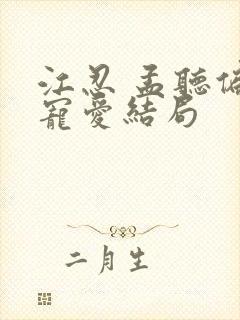 江忍 孟聽偏
寵愛結局
二月生